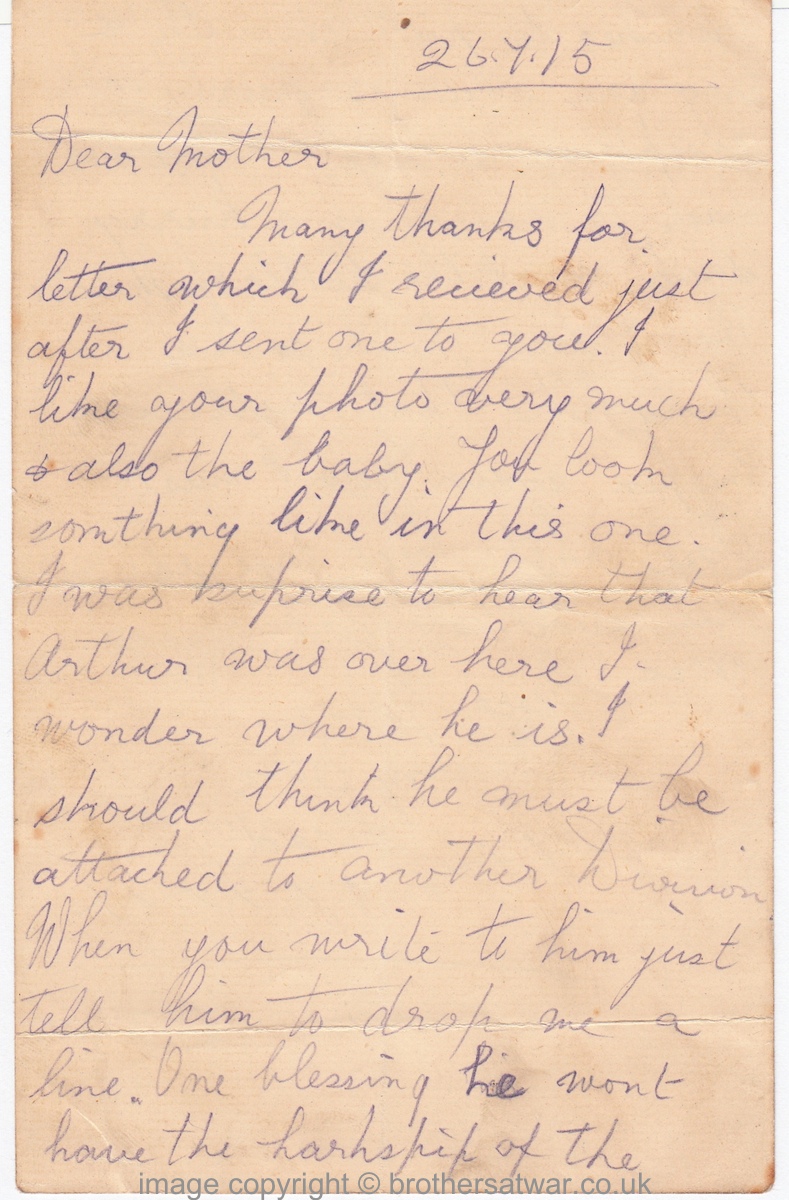 26.7.15
Dear Mother
Many thanks for
letter which I recieved just
after I sent one to you. I
like your photo very much
& also the baby. You look
somthing like in this one.
I was suprise to hear that
Arthur was over here I
wonder where he is. I
should think he must be
attached to another Division
When you write to him just
tell him to drop me a
line. One blessing he wont
have the harhspip of the
image copyright © brothersatwar.co.uk